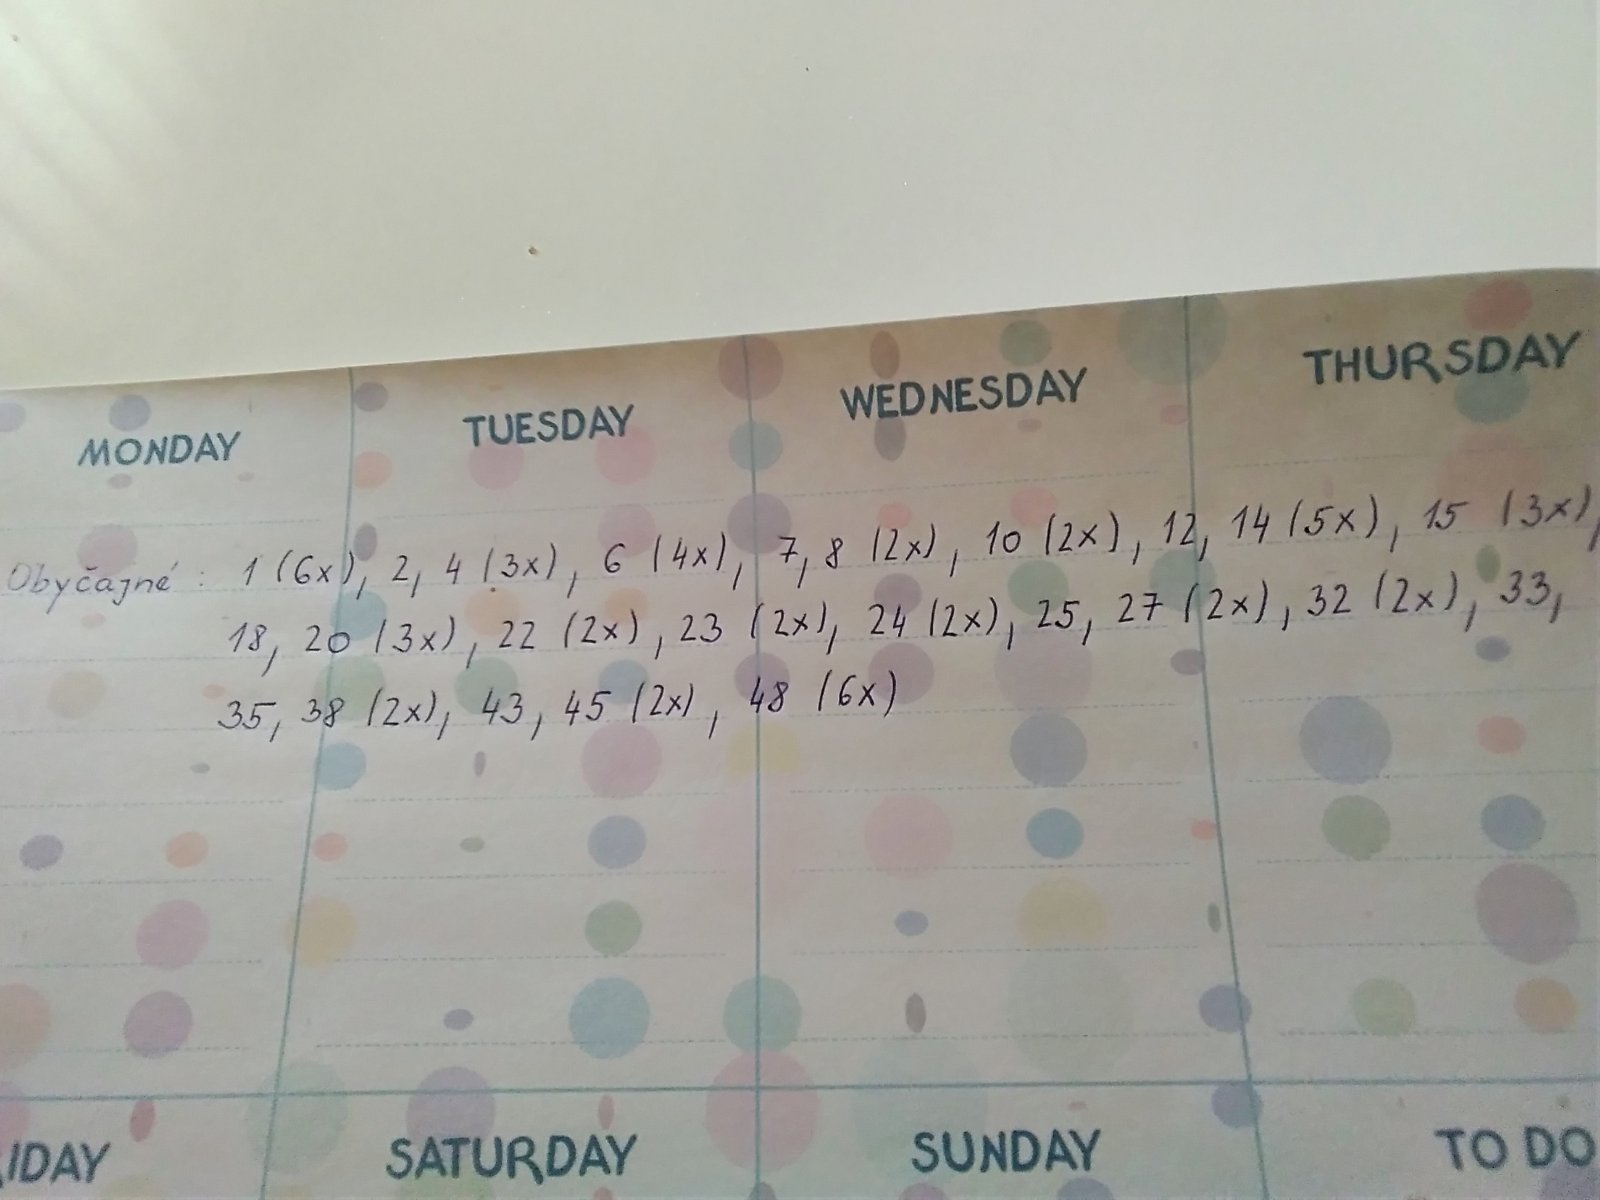 MONDAY TUESDAY WEDNESDAY THURSDAY
Obyčajné: 1 (6x), 2, 4 (3x), 6 (4x), 7, 8 (2x), 10 (2x), 12, 14 (5x), 15 (3x),
18, 20 (3x), 22 (2x), 23 (2x), 24 (2x), 25, 27 (2x), 32 (2x), 33,
35, 38 (2x), 43, 45 (2x), 48 (6x)
IDAY SATURDAY SUNDAY TO DO